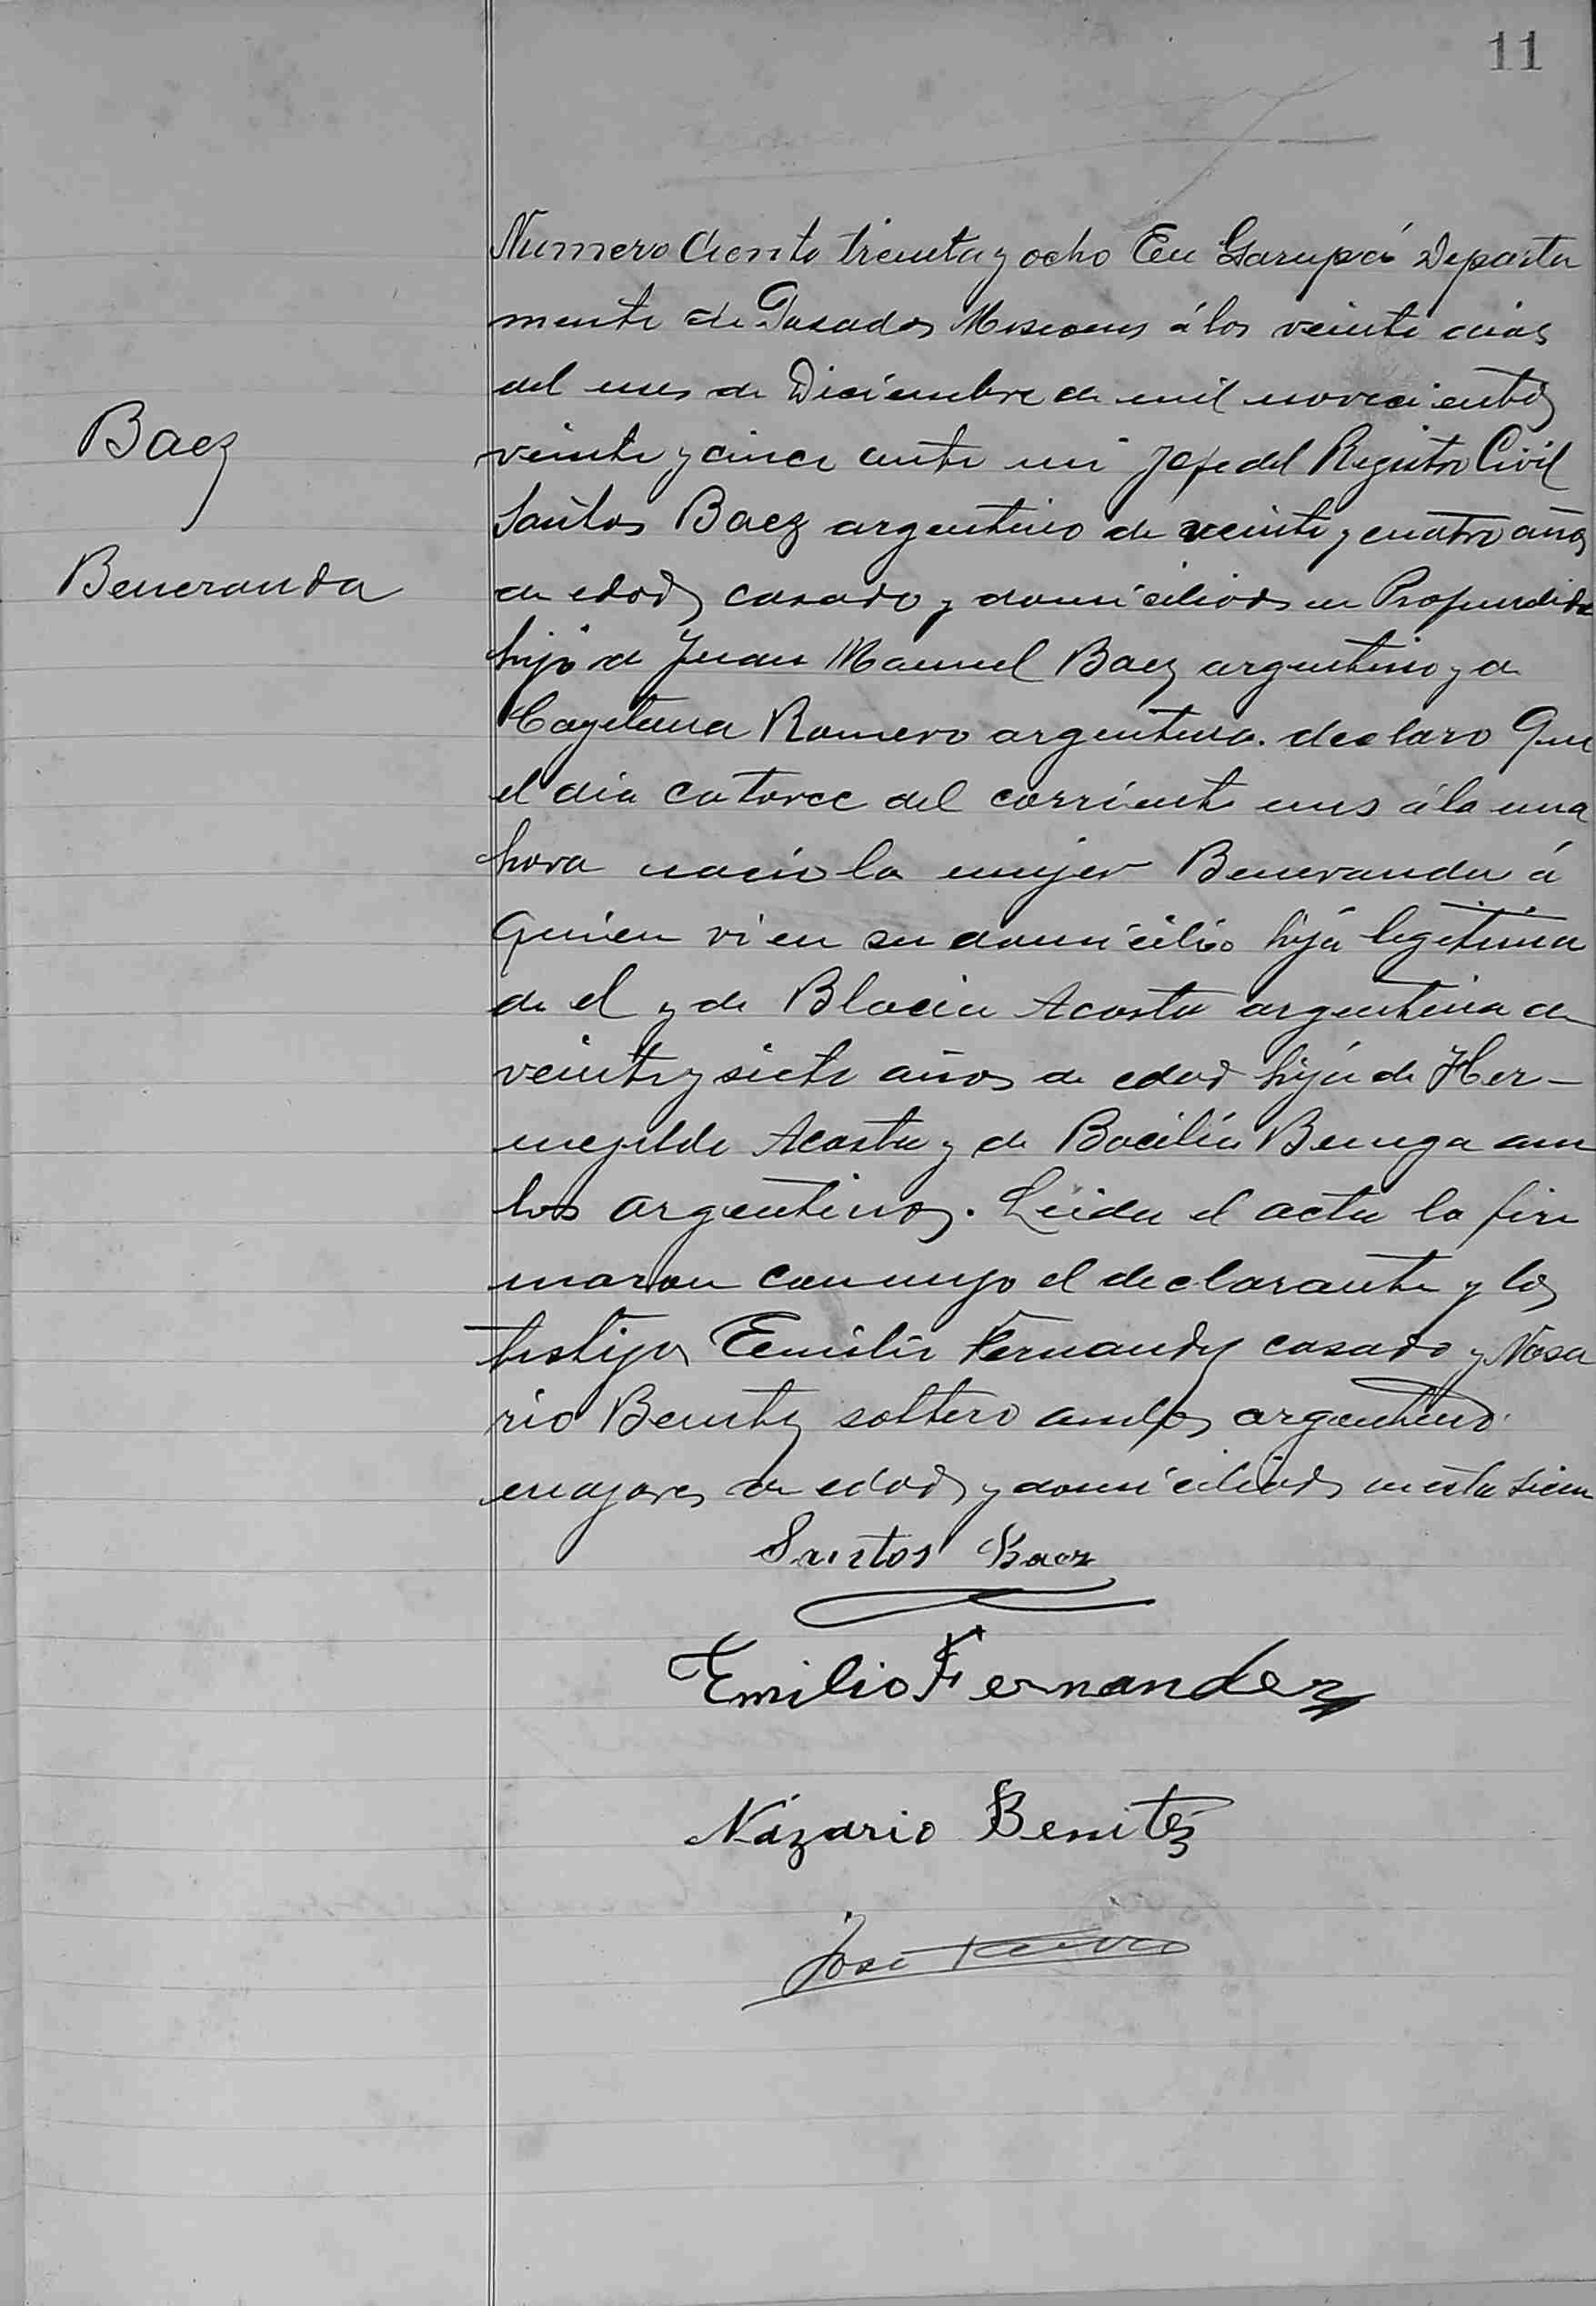 11
Numero Ciento treinta y ocho En Garupá Departa
mento de Posadas Misiones á los veinte dias
del mes de Diciembre de mil novecientos
Baez
veinte y cinco ante mi Jefe del Registro Civil
Santos Baez argentino de veinte y cuatro años
Beneranda
de edad casado y domiciliado en Profundida
hijo de Juan Manuel Baez argentino y de
Cayetana Romero argentina. declaro Que
el dia catorce del corriente mes á la una
hora nacio la mujer Beneranda á
Quien vi en su domicilio hija legitima
de el y de Blacia Acosta argentina de
veinte y siete años de edad hija de Her-
mejildo Acosta y de Bacilia am
bos argentinos. Leida el acta la fir
maron conmigo el declarante y los
testigos Emilio Fernandez casado y Nasa
rio Benitez soltero ambos argentinos
mayores de edad y domiciliados en esta
Santos Baez
Emilio Fernandez
Názario Benitéz
José